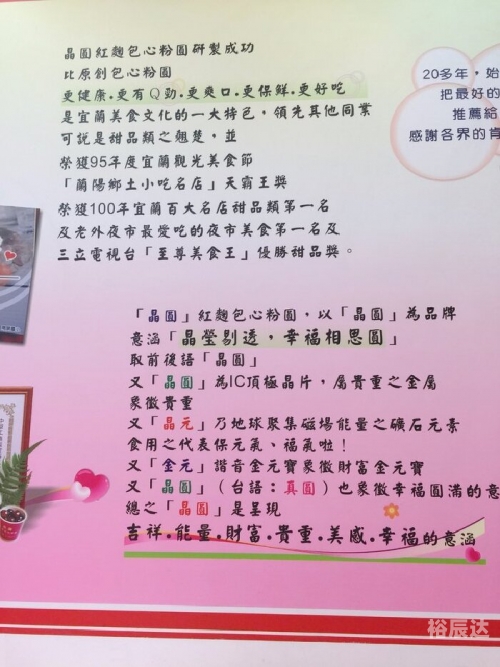 晶圓紅麴包心粉圓研製成功
比原創包心粉圓
更健康.更有Q勁.更爽口.更保鮮.更好吃
是宜蘭美食文化的一大特色，領先其他同業
可說是甜品類之翹楚，並
榮獲95年度宜蘭觀光美食節
「蘭陽鄉土小吃名店」天霸王獎
榮獲100年宜蘭百大名店甜品類第一名
及老外夜市最愛吃的夜市美食第一名及
三立電視台「至尊美食王」優勝甜品獎。
20多年，始
把最好的
推薦給
感謝各界的肯
「晶圓」紅麴包心粉圓，以「晶圓」為品牌
意涵「晶瑩剔透，幸福相思圓」
取前後語「晶圓」
又「晶圓」為IC頂極晶片，屬貴重之金屬
象徵貴重
又「晶元」乃地球聚集磁場能量之礦石元素
食用之代表保元氣、福氣啦！
又「金元」諧音金元寶象徵財富金元寶
又「晶圓」（台語：真圓）也象徵幸福圓滿的意
總之「晶圓」是呈現
吉祥.能量.財富.貴重.美感.幸福的意涵
裕辰达